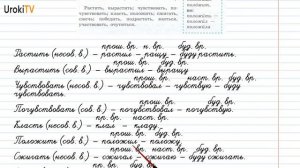 UrokiTV
Растить, вырастить; чувствовать, по-
чувствовать; класть, положить; сжигать,
сжечь; победить, вырастить, мчаться,
участвовать, очутиться.
прош. вр. н. вр. буд. вр.
Растить (несов. в.) – растил – ращу – буду растить.
прош. вр. буд. вр.
Вырастить (сов. в.) – вырастил – выращу
прош. вр. наст. вр. буд. вр.
Чувствовать (несов. в.) – чувствовал – чувствую – буду
чувствовать.
прош. вр. буд. вр.
Почувствовать (сов. в.) – почувствовал – почувствую.
пр. вр. наст. вр.
Класть (несов. в.) – клал – кладу.
прош. вр. буд. вр.
Положить (сов. в.) – положил – положу.
прош. вр. наст. вр. буд. вр.
Сжигать (несов. в.) – сжигал – сжигаю – буду сжигать.
пр. вр. буд. вр.